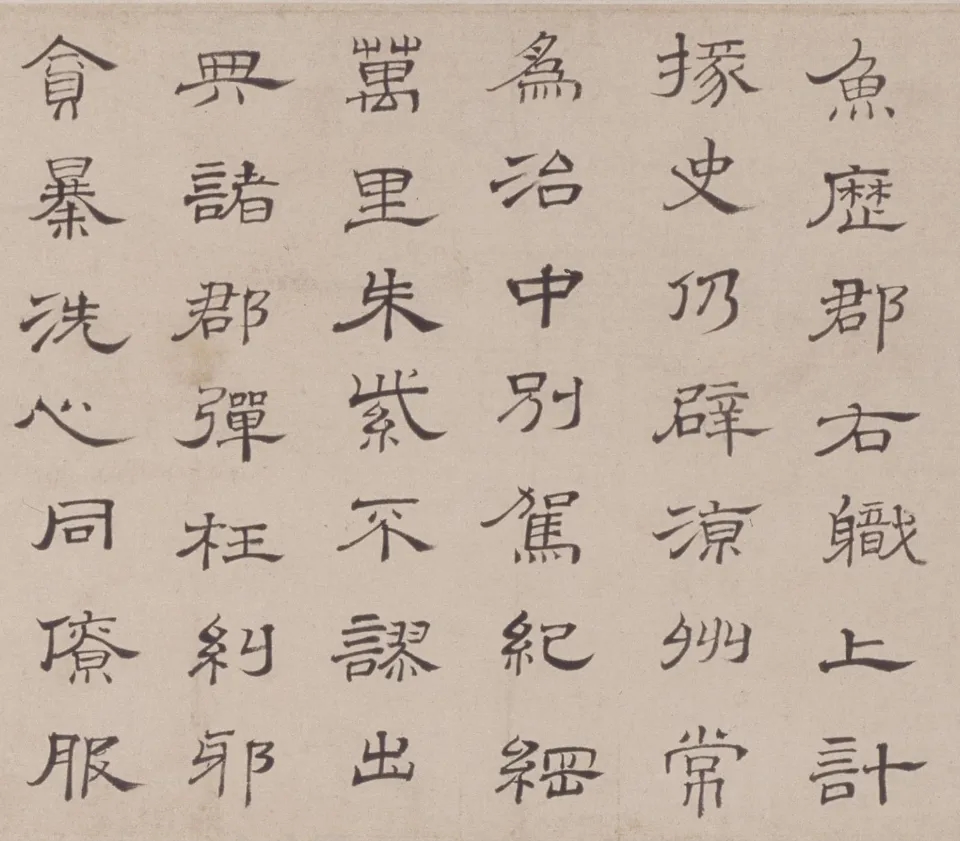 魚歷郡右職上計
掾史仍辟涼州常
為治中別駕紀綱
萬里朱紫不謬出
典諸郡彈枉糾邪
貪暴洗心同僚服